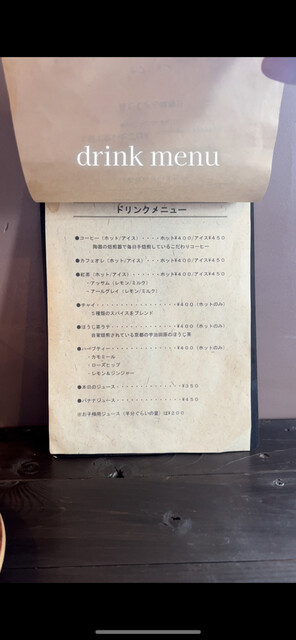 drink menu
ドリンクメニュー
●コーヒー（ホット/アイス）・・・・ホット¥400/アイス¥450
自家焙煎されているこだわりコーヒー
●カフェオレ（ホット/アイス）・・・ホット¥400/アイス¥450
●紅茶（ホット/アイス）・・・・・ホット¥400/アイス¥450
・アッサム（レモン/ミルク）
・アールグレイ（レモン/ミルク）
●チャイ・・・・・・・・・・・・・¥400（ホットのみ）
５種類のスパイスをブレンド
●ほうじ茶ラテ・・・・・・・・・・¥400（ホットのみ）
●ハーブティー・・・・・・・・・・¥400（ホットのみ）
・カモミール
・ローズヒップ
・レモン＆ジンジャー
●本日のジュース・・・・・・・・・・・・・¥350
●バナナジュース・・・・・・・・・・・・・¥450
※お子様用ジュース（半分ぐらいの量）は¥200